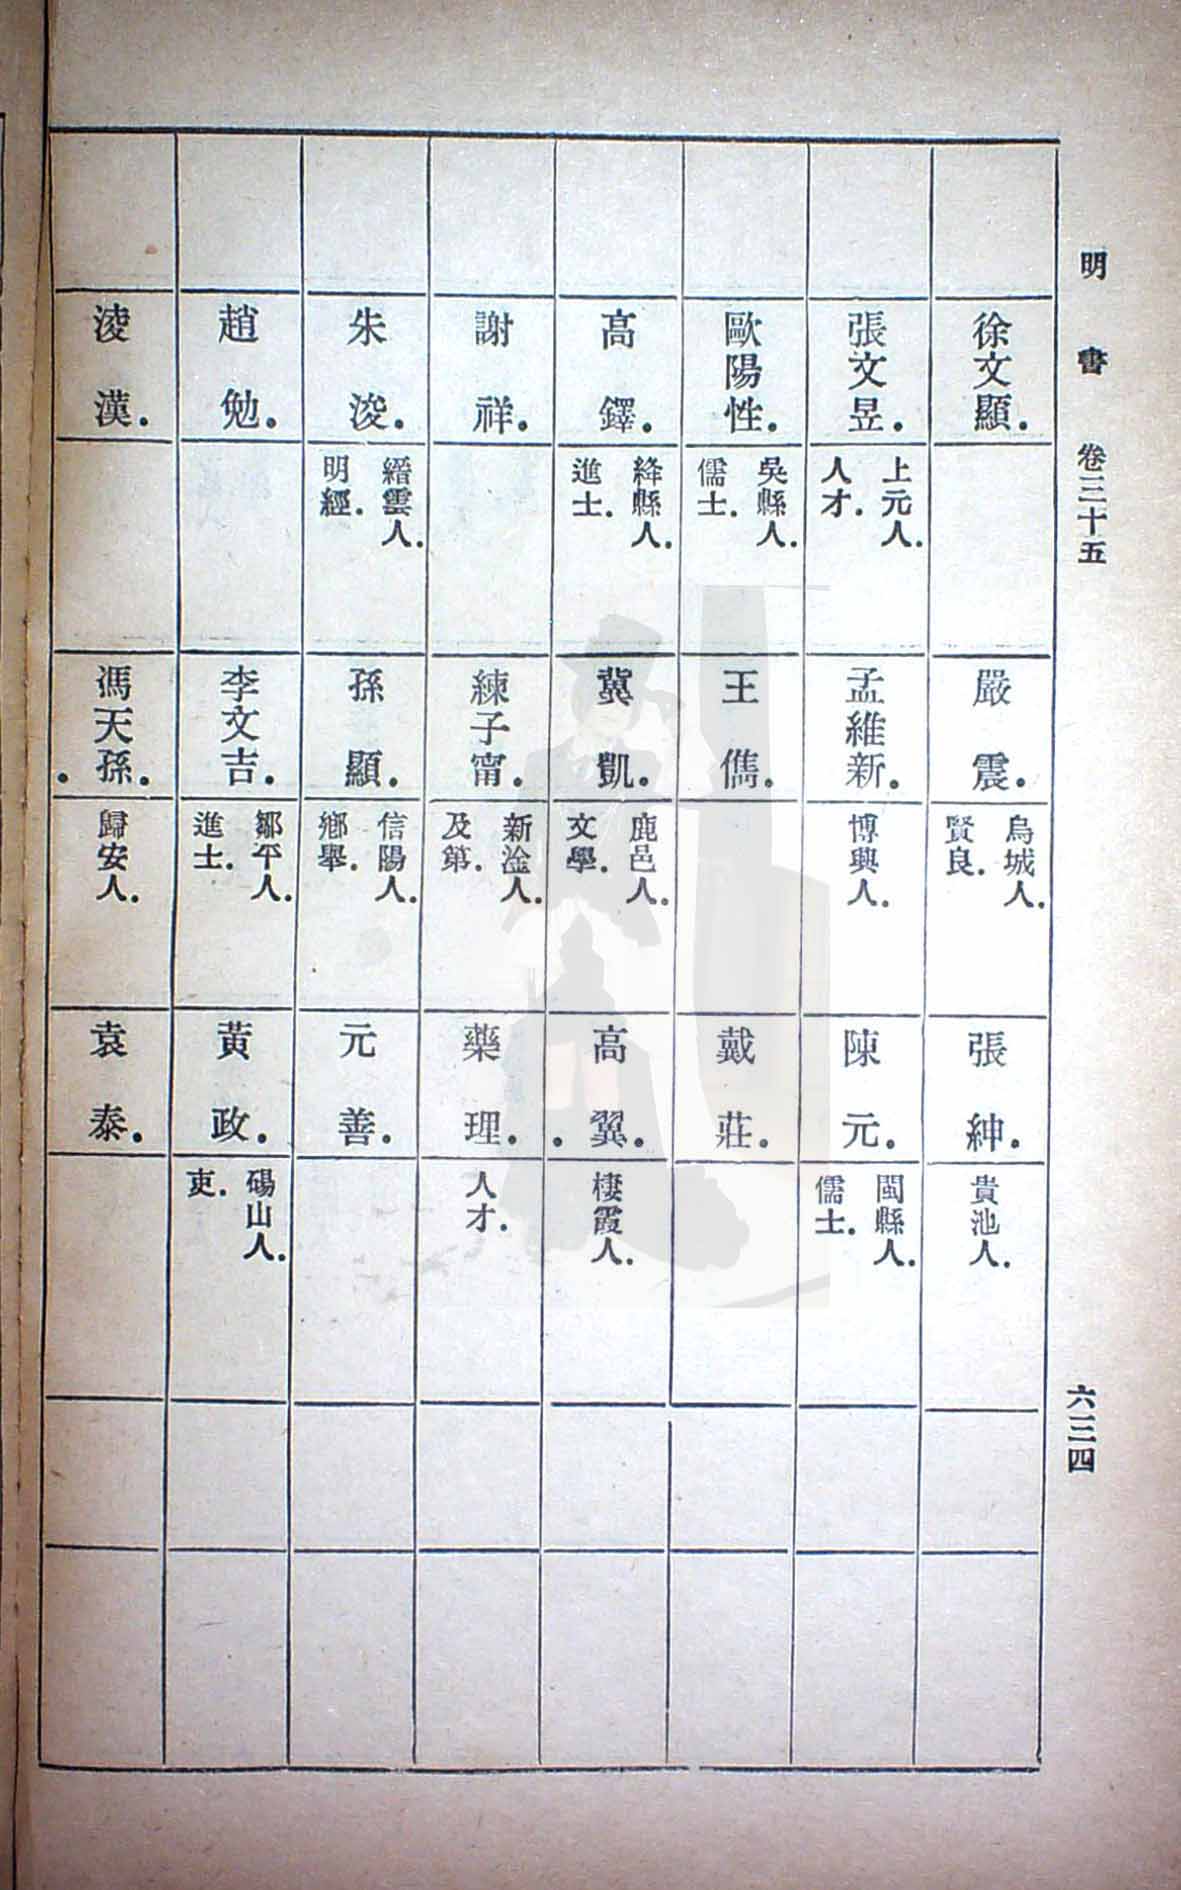 明書 卷三十五 六三四
徐文顯.
嚴震.
烏城人.
賢良.
張紳.
貴池人.
張文昱.
上元人.
人才.
孟維新.
博興人.
陳元.
閩縣人.
儒士.
歐陽性.
吳縣人.
儒士.
王儁.
戴莊.
高鐸.
絳縣人.
進士.
冀凱.
鹿邑人.
文學.
高翼.
棲霞人.
謝祥.
練子甯.
新淦人.
及第.
藥理.
人才.
朱浚.
縉雲人.
明經.
孫顯.
信陽人.
鄉舉.
元善.
趙勉.
李文吉.
鄒平人.
進士.
黃政.
碭山人.
吏.
淩漢.
馮天孫.
歸安人.
袁泰.